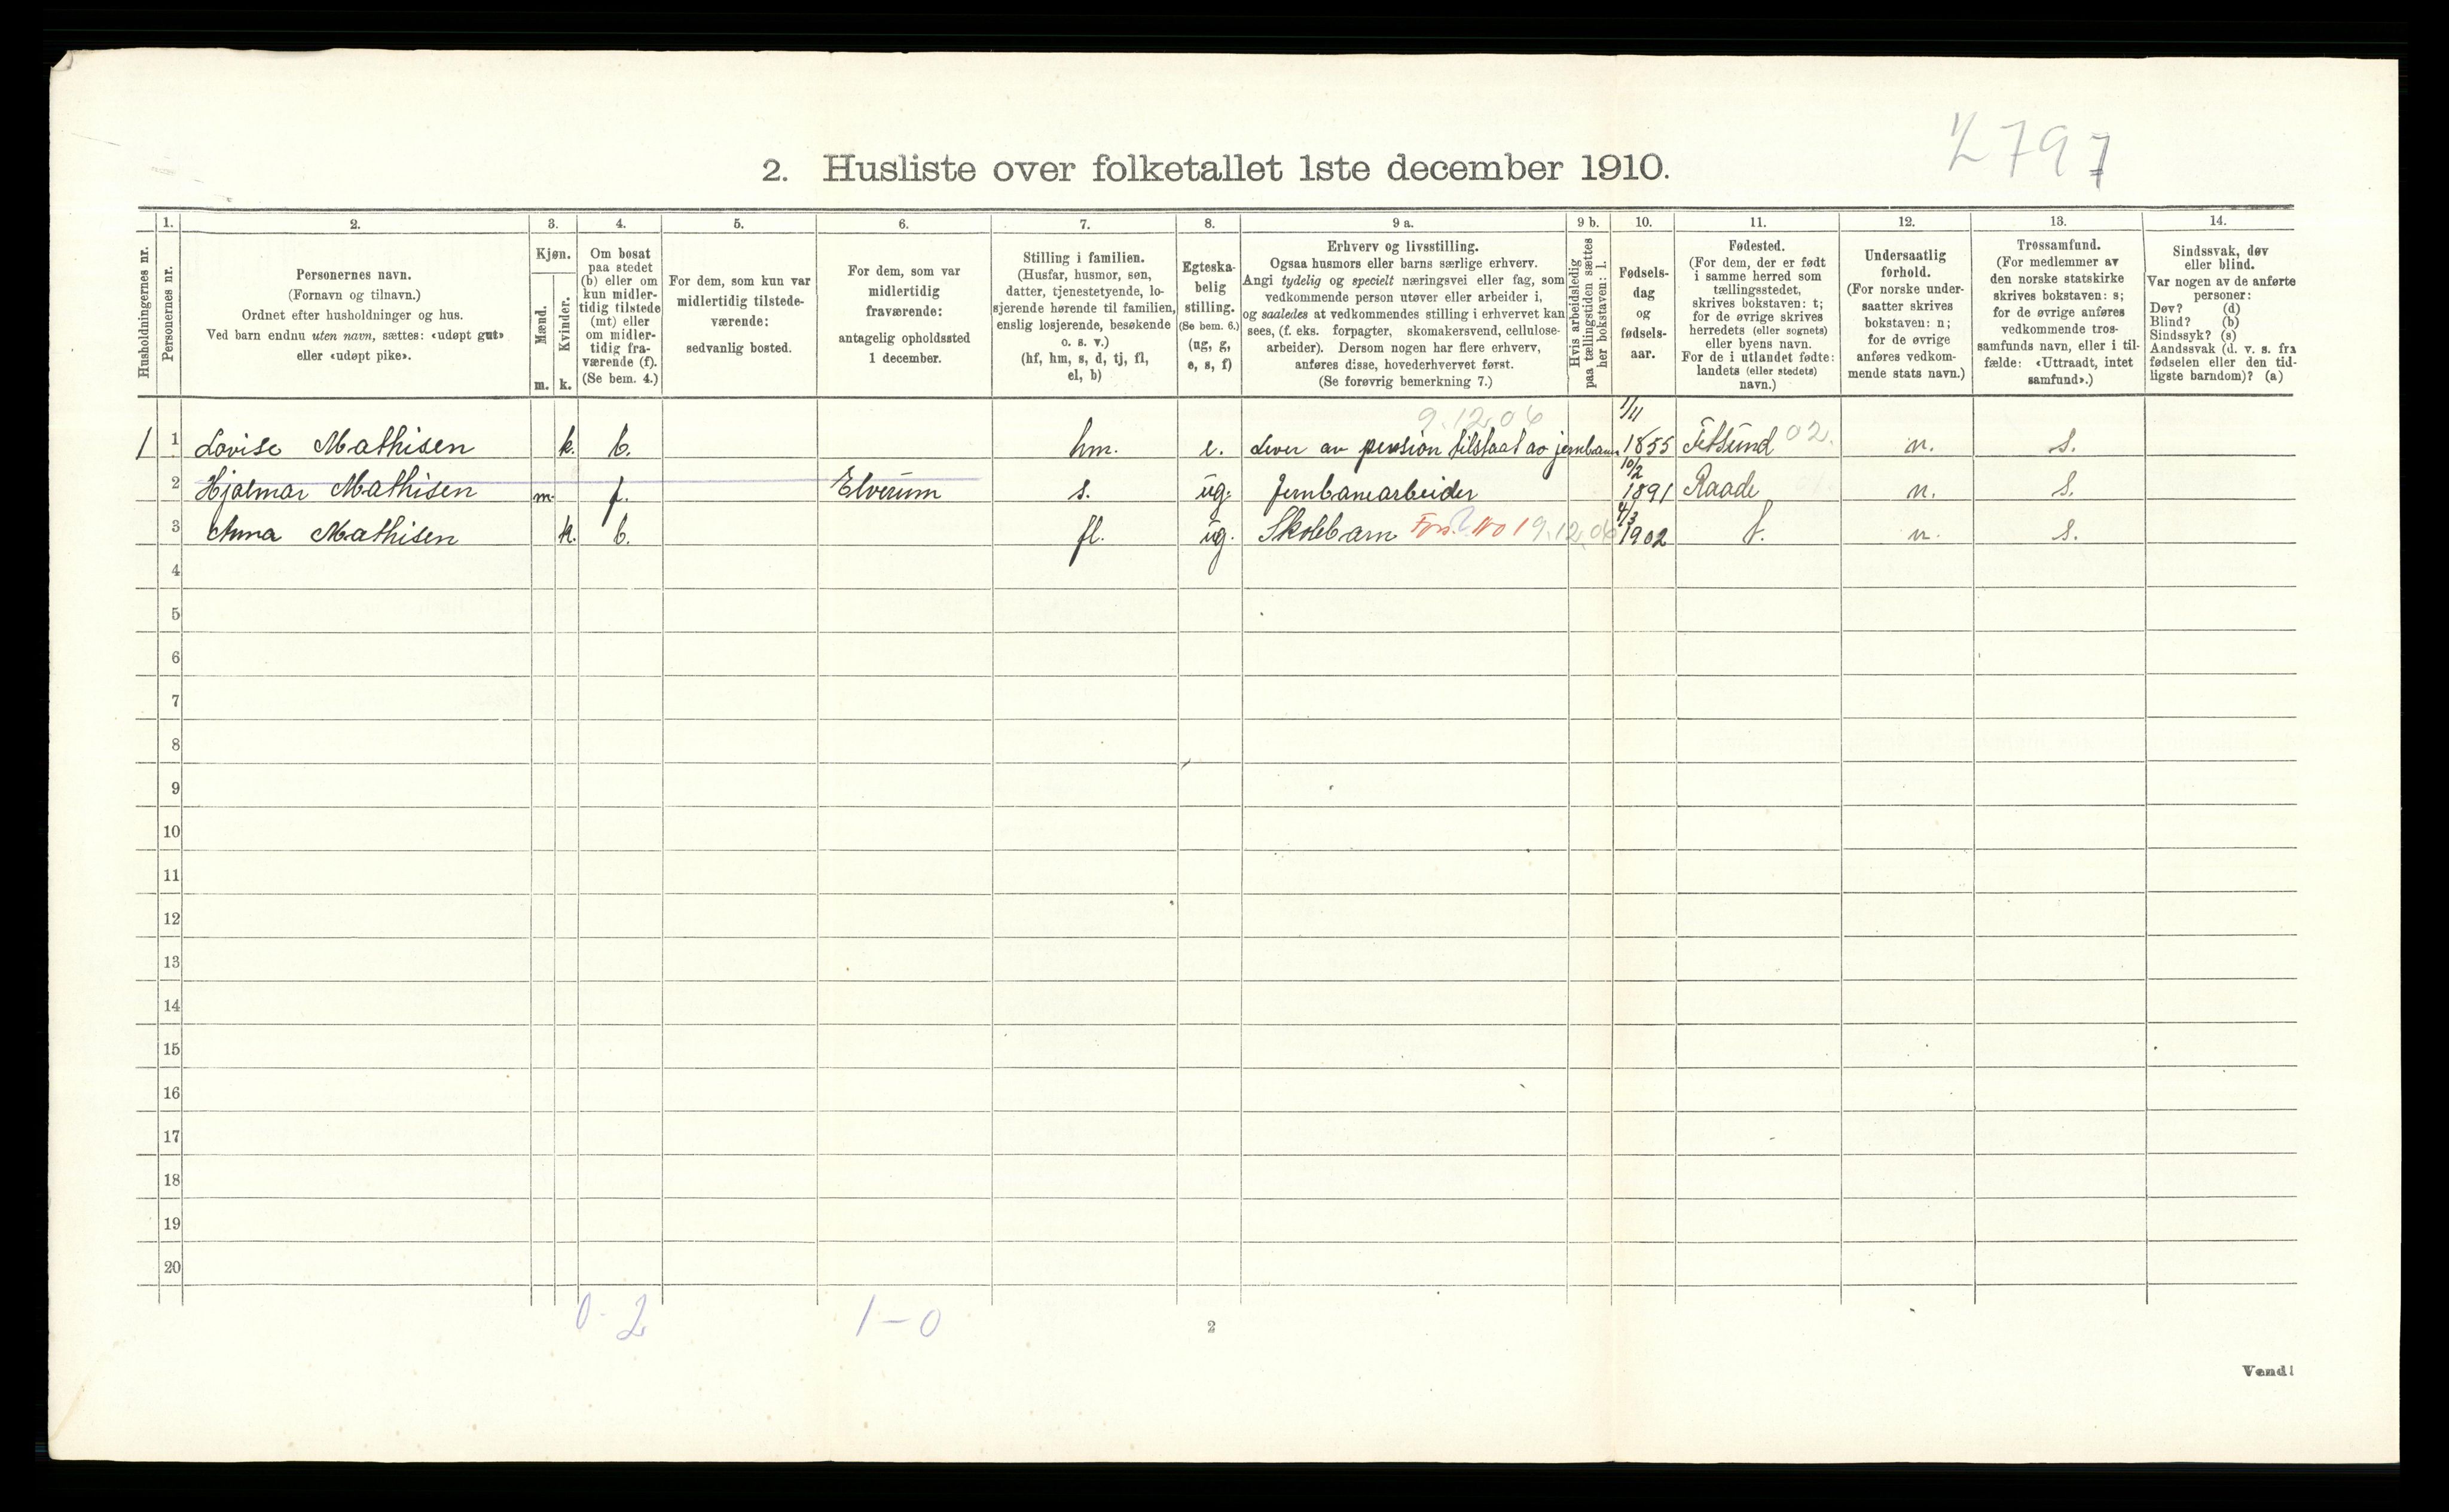 ½ 797
2. Husliste over folketallet 1ste december 1910.
Husholdningernes nr.
1.
Personernes nr.
2.
Personernes navn.
(Fornavn og tilnavn.)
Ordnet efter husholdninger og hus.
Ved barn endnu uten navn, sættes: «udøpt gut»
eller «udøpt pike».
3.
Kjøn.
Mænd.
Kvinder.
m. k.
4.
Om bosat
paa stedet
(b) eller om
kun midler-
tidig tilstede
(mt) eller
om midler-
tidig fra-
værende (f).
(Se bem. 4.)
5.
For dem, som kun var
midlertidig tilstede-
værende:
sedvanlig bosted.
6.
For dem, som var
midlertidig
fraværende:
antagelig opholdssted
1 december.
7.
Stilling i familien.
(Husfar, husmor, søn,
datter, tjenestetyende, lo-
sjerende hørende til familien,
enslig losjerende, besøkende
o. s. v.)
(hf, hm, s, d, tj, fl,
el, b)
8.
Egteska-
belig
stilling.
(Se bem. 6.)
(ug, g,
e, s, f)
9 a.
Erhverv og livsstilling.
Ogsaa husmors eller barns særlige erhverv.
Angi tydelig og specielt næringsvei eller fag, som
vedkommende person utøver eller arbeider i,
og saaledes at vedkommendes stilling i erhvervet kan
sees, (f. eks. forpagter, skomakersvend, cellulose-
arbeider). Dersom nogen har flere erhverv,
anføres disse, hovederhvervet først.
(Se forøvrig bemerkning 7.)
9 b.
Hvis arbeidsledig
paa tællingstiden sættes
her bokstaven: l.
10.
Fødsels-
dag
og
fødsels-
aar.
11.
Fødested.
(For dem, der er født
i samme herred som
tællingsstedet,
skrives bokstaven: t;
for de øvrige skrives
herredets (eller sognets)
eller byens navn.
For de i utlandet fødte:
landets (eller stedets)
navn.)
12.
Undersaatlig
forhold.
(For norske under-
saatter skrives
bokstaven: n;
for de øvrige
anføres vedkom-
mende stats navn.)
13.
Trossamfund.
(For medlemmer av
den norske statskirke
skrives bokstaven: s;
for de øvrige anføres
vedkommende tros-
samfunds navn, eller i til-
fælde: «Uttraadt, intet
samfund».)
14.
Sindssvak, døv
eller blind.
Var nogen av de anførte
personer:
Døv? (d)
Blind? (b)
Sindssyk? (s)
Aandssvak (d. v. s. fra
fødselen eller den tid-
ligste barndom)? (a)
9.12.06 1/11
1 1 Lovise Mathisen k. b. hm. e. Lever av pension tilstaat av jernbanen 1855 Fetsund 02. n. s.
10/2
2 Hjalmar Mathisen m. f. Elverum s. ug. Jernbanearbeider 1891 Raade n. s.
4/3
3 Anna Mathisen k. b. fl. ug. Skolebarn Fors. No 1 9.12.06 1902 t. n. s.
4
5
6
7
8
9
10
11
12
13
14
15
16
17
18
19
20
0-2 1-0
2
Vend!